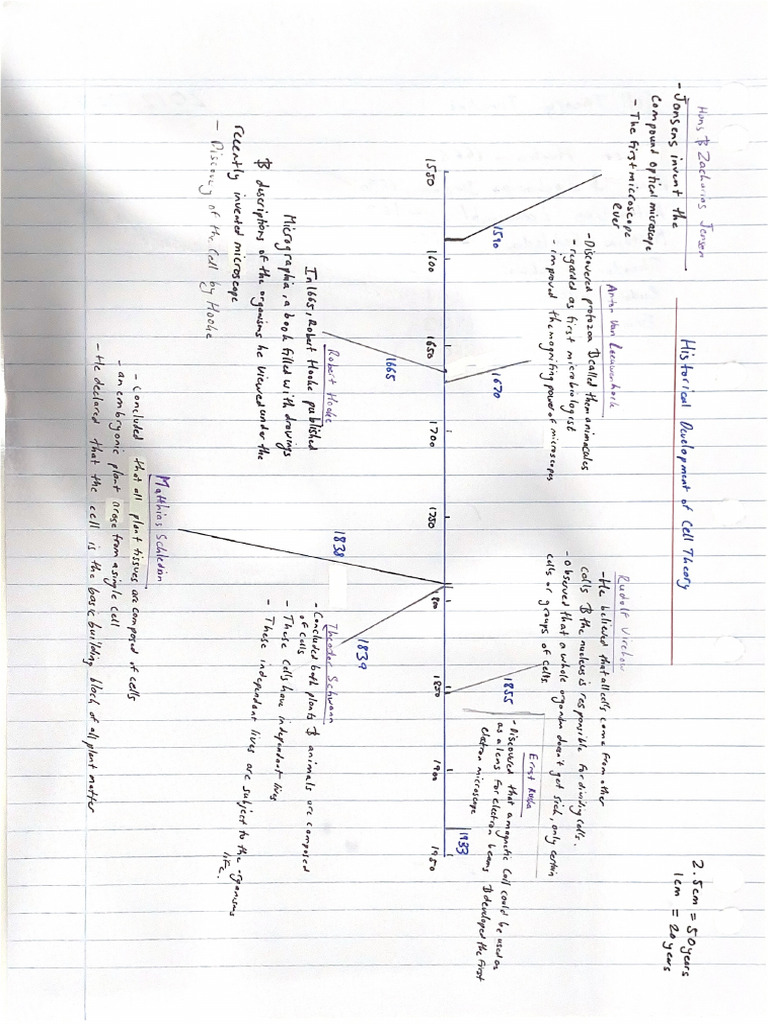 Historical Development of Cell Theory
2.5cm = 50 years
1cm = 20 years
Hans & Zacharias Jensen
- Jansens invent the
compound optical microscope
- The first microscope
ever
1590
Anton Van Leeuwenhoek
- Discovered protozoa & called them animalcules
- regarded as first microbiologist
- improved the magnifing power of microscopes
1670
Rudolf Virchow
- He believed that all cells come from other
cells & the nucleus is responsible for dividing cells.
- observed that a whole organism doesn't get sick, only certain
cells or groups of cells.
1855
Ernst Ruska
- Discovered that a magnetic coil could be used
as a lens for electron beams & developed the first
electron microscope
1933
1550
1600
1650
1700
1750
1800
1850
1900
1950
1665
Robert Hooke
In 1665, Robert Hooke published
Micrographia, a book filled with drawings
& descriptions of the organisms he viewed under the
recently invented microscope
- Discovery of the cell by Hooke
1838
Matthias Schledian
- Concluded that all plant tissues are composed of cells
- an embryonic plant arose from a single cell
- He declared that the cell is the basic building block of all plant matter
1839
Theodor Schwann
- Concluded both plants & animals are composed
of cells
- These cells have independent lives
- These independent lives are subject to the organisms
life.